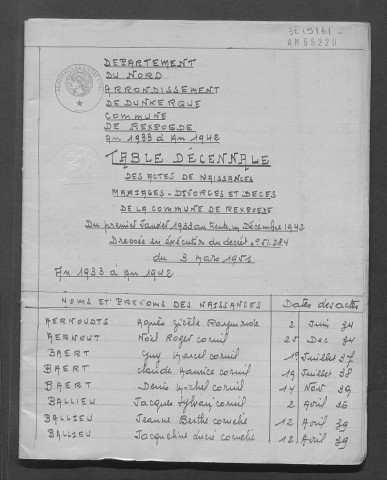 3E 15161
AM 55220
DEPARTEMENT
DU NORD
ARRONDISSEMENT
DE DUNKERQUE
COMMUNE
DE REXPOEDE
An 1933 à An 1942
TABLE DÉCENNALE
DES ACTES DE NAISSANCES
MARIAGES - DIVORCES ET DECES
DE LA COMMUNE DE REXPOEDE
Du premier Janvier 1933 au Trente un Décembre 1942
Dressée en éxécution du décret n° 51.284
du 3 mars 1951
An 1933 à An 1942
NOMS ET PRENOMS DES NAISSANCES Dates des actes
AERNOUDTS Agnès Gisèle 2 Juin 34
AERNOUT Noël Roger Cornil 25 Dec 34
BAERT Guy Marcel Cornil 1° Juillet 37
BAERT Claude Maurice Cornil 19 Juillet 38
BAERT Denis Michel Cornil 14 Nov 39
BALLIEU Jacques Sylvain Cornil 2 Avril 36
BALLIEU Jeanne Berthe Cornelie 12 Avril 39
BALLIEU Jacqueline Lucie Cornelie 12 Avril 39